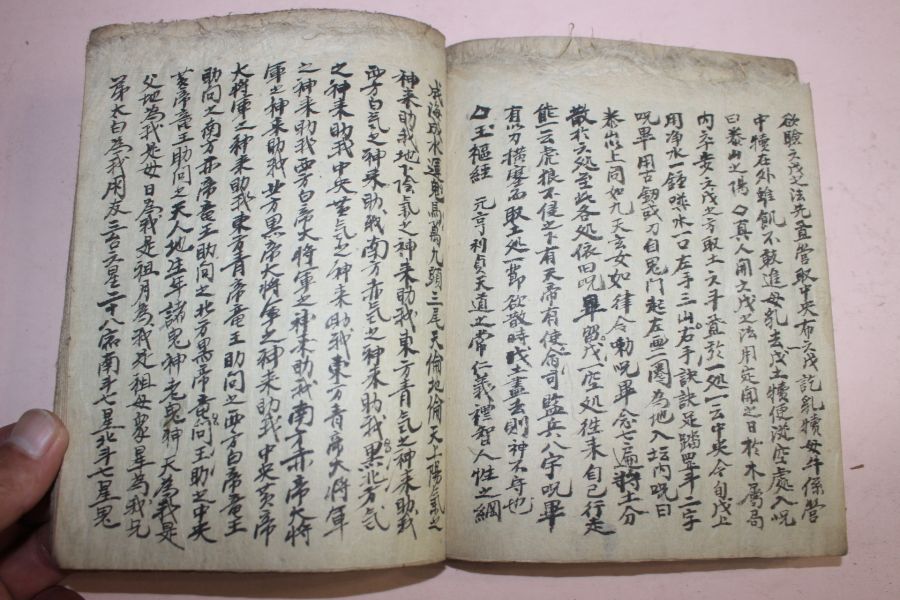 欲驗六戊之法先直營取中央布六戊訖乳犢母牛係營
中犢在外雖飢不敢進母乳去戊土犢便從空處入呪
曰泰山之陽 真人用六戊之法用定開之日於木屬局
內六步六戊之方取土六斗置於一処一云中央令旬戊上
用净水一鍾噀水一口左手三山右手訣訣足踏罡斗二字
呪畢用古釼或刀自鬼門起左畫一圈為地入坛内呪曰
泰山以上同如九天玄女如律令勅呪畢念七遍將土六分
散於六処至此各処依旧呪畢留戊一座処徃来自己行走
能云虎狼不侵之下有天帝有使命司監兵八字呪畢
有以刀橫磨而取土処一節欲散時戊土盡去則神不守也
口玉樞經 元亨利貞天道之常仁義禮智人性之綱
成海成水還鬼高萬九頭三尾天倫地倫天上陽氣之
神来助我地下冷氣之神来助我東方青氣之神来助我
西方白氣之神来助我南方赤氣之神来助我黑北方氣
之神来助我中央黃氣之神来助我東方青帝大將軍
之神来助我西方白帝大將軍之神来助我南方赤帝大將
軍之神来助我北方黑帝大將軍之神来助我中央黃帝
大將軍之神来助我東方青帝竜王助问之西方白帝竜王
助问之南方赤帝竜王助问之北方黑帝竜问王助之中央
黃帝竜王助问之天人地生年諸鬼神老鬼神天為我是
父地為我是母日為我是祖月為我是祖母衆星為我兄
弟太白為我朋友三台六星二十八宿南斗七星北斗七星鬼